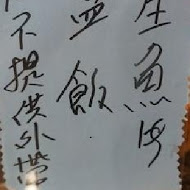 生魚片
蓋飯
不提供外帶